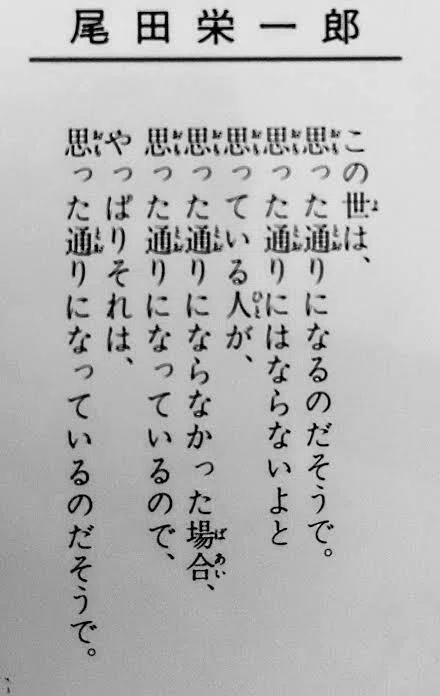 尾田栄一郎
この世は、
思った通りになるのだそうで。
思った通りにはならないよと
思っている人が、
思った通りにならなかった場合、
思った通りになっているので、
やっぱりそれは、
思った通りになっているのだそうで。